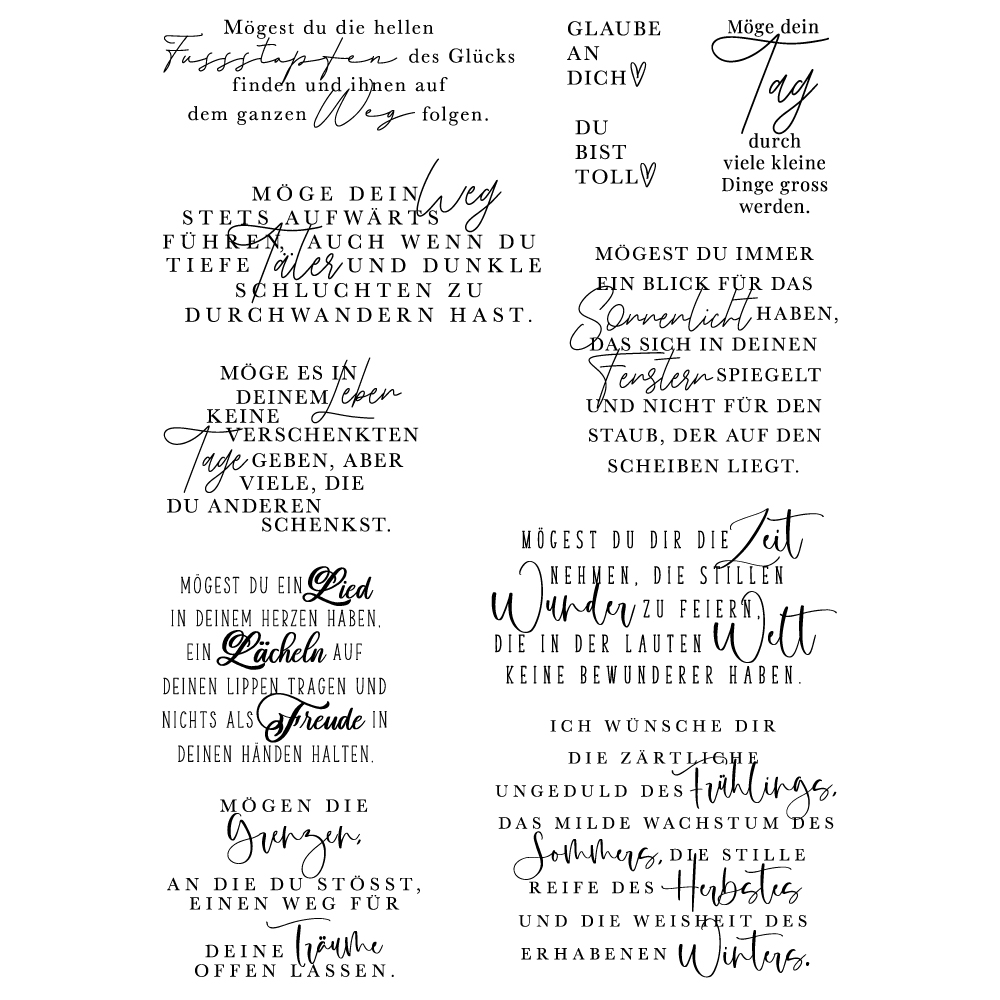 Mögest du die hellen
Fussstapfen des Glücks
finden und ihnen auf
dem ganzen Weg folgen.
GLAUBE
AN
DICH
DU
BIST
TOLL
Möge dein
Tag
durch
viele kleine
Dinge gross
werden.
MÖGE DEIN Weg
STETS AUFWÄRTS
FÜHREN, AUCH WENN DU
TIEFE Täler UND DUNKLE
SCHLUCHTEN ZU
DURCHWANDERN HAST.
MÖGEST DU IMMER
EIN BLICK FÜR DAS
Sonnenlicht HABEN,
DAS SICH IN DEINEN
Fenstern SPIEGELT
UND NICHT FÜR DEN
STAUB, DER AUF DEN
SCHEIBEN LIEGT.
MÖGE ES IN
DEINEM Leben
KEINE
VERSCHENKTEN
Tage GEBEN, ABER
VIELE, DIE
DU ANDEREN
SCHENKST.
MÖGEST DU DIR DIE Zeit
NEHMEN, DIE STILLEN
Wunder ZU FEIERN,
DIE IN DER LAUTEN Welt
KEINE BEWUNDERER HABEN.
MÖGEST DU EIN Lied
IN DEINEM HERZEN HABEN,
EIN Lächeln AUF
DEINEN LIPPEN TRAGEN UND
NICHTS ALS Freude IN
DEINEN HÄNDEN HALTEN.
ICH WÜNSCHE DIR
DIE ZÄRTLICHE
UNGEDULD DES Frühlings,
DAS MILDE WACHSTUM DES
Sommers, DIE STILLE
REIFE DES Herbstes
UND DIE WEISHEIT DES
ERHABENEN Winters.
MÖGEN DIE
Grenzen,
AN DIE DU STÖSST,
EINEN WEG FÜR
DEINE Träume
OFFEN LASSEN.